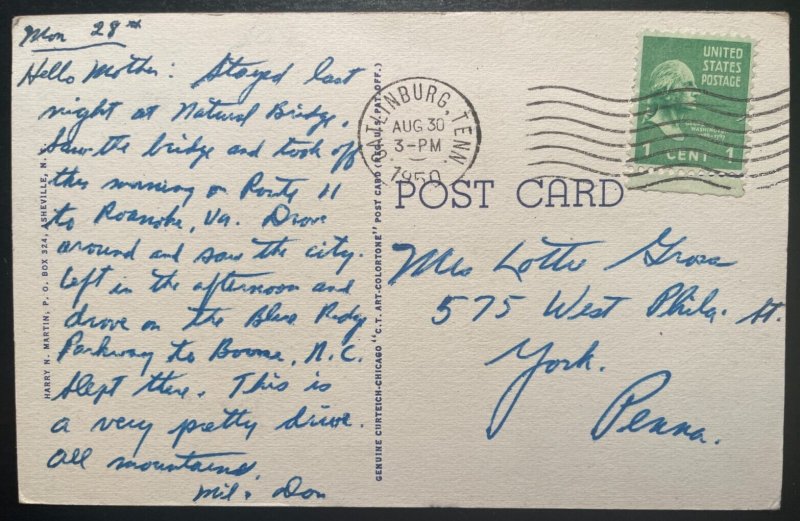 Mon 28th
Hello Mother: Stayed last
night at Natural Bridge,
saw the bridge and took off
this morning on Route 11
to Roanoke, Va. Drove
around and saw the city.
Left in the afternoon and
drove on the Blue Ridge
Parkway to Boone, N.C.
Slept there. This is
a very pretty drive.
All mountains.
Mil & Don
HARRY N. MARTIN, P. O. BOX 324, ASHEVILLE, N.
GENUINE CURTEICH-CHICAGO "C.T. ART-COLORTONE" POST CARD (REG. U.S. PAT. OFF.)
TENN.
AUG 30
3-PM
1950
UNITED
STATES
POSTAGE
WASHINGTON
1 CENT 1
POST CARD
Mrs Lottie Gross
575 West Phila. St.
York.
Penna.